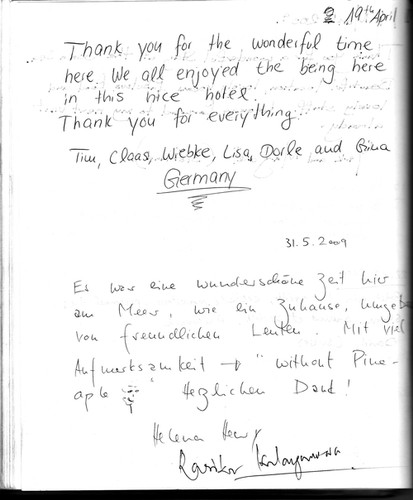 19th April
Thank you for the wonderful time
here. We all enjoyed the being here
in this nice hotel.
Thank you for everything.
Tim, Claas, Wiebke, Lisa, Dorle and Gina
Germany
31.5.2009
Es war eine wunderschöne Zeit hier
am Meer, wie ein Zuhause, umgeb
von freundlichen Leuten. Mit viel
Aufmerksamkeit → "without Pine-
aple" Herzlichen Dank!
Helena